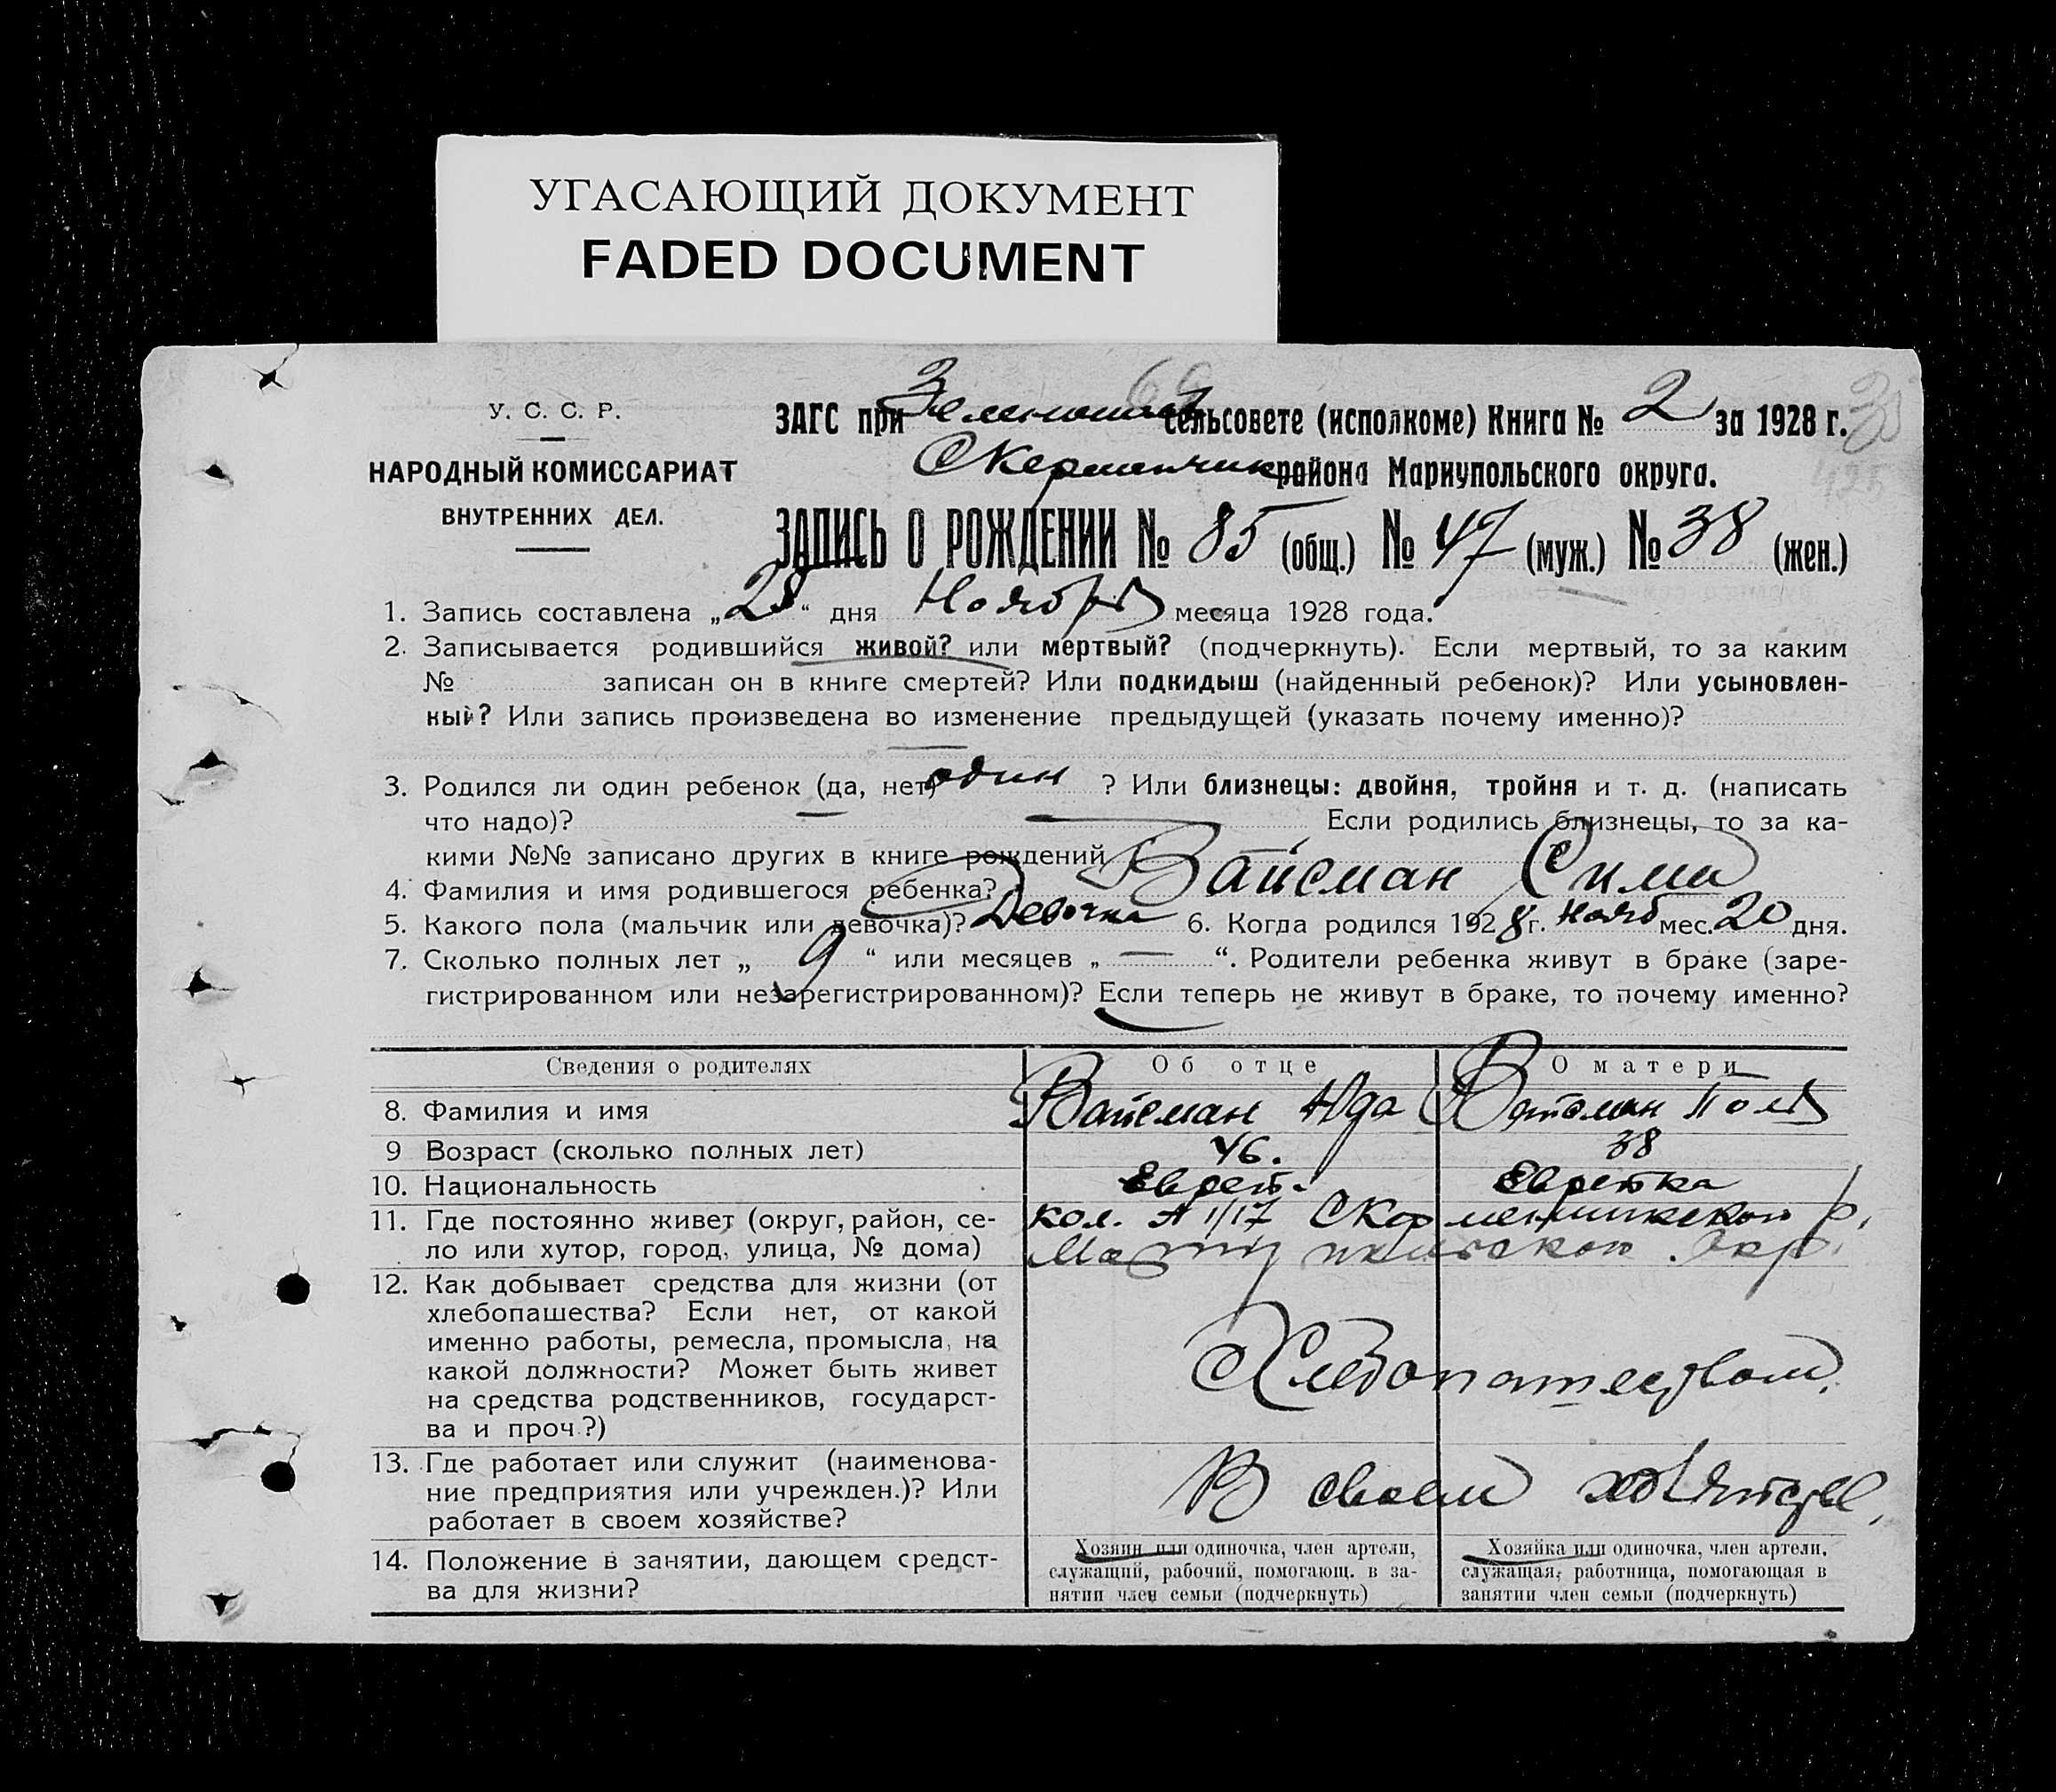 УГАСАЮЩИЙ ДОКУМЕНТ
FADED DOCUMENT
У. С. С. Р.
НАРОДНЫЙ КОМИССАРИАТ
ВНУТРЕННИХ ДЕЛ.
ЗАГС при сельсовете (исполкоме) Книга № 2 за 1928 г.
района Мариупольского округа.
ЗАПИСЬ О РОЖДЕНИИ № 85 (общ.) № 47 (муж.) № 38 (жен.)
1. Запись составлена „28“ дня Ноября месяца 1928 года.
2. Записывается родившийся живой? или мертвый? (подчеркнуть). Если мертвый, то за каким
№ записан он в книге смертей? Или подкидыш (найденный ребенок)? Или усыновлен-
ный? Или запись произведена во изменение предыдущей (указать почему именно)?
3. Родился ли один ребенок (да, нет) один ? Или близнецы: двойня, тройня и т. д. (написать
что надо)? Если родились близнецы, то за ка-
кими №№ записано других в книге рождений
4. Фамилия и имя родившегося ребенка? Вайсман Сима
5. Какого пола (мальчик или девочка)? Девочка 6. Когда родился 1928 г. Нояб мес. 20 дня.
7. Сколько полных лет „ 9 “ или месяцев „ — “. Родители ребенка живут в браке (заре-
гистрированном или незарегистрированном)? Если теперь не живут в браке, то почему именно?
Сведения о родителях Об отце О матери
8. Фамилия и имя Вайсман Юда Вайсман Поля
9 Возраст (сколько полных лет) 46. 38
10. Национальность Еврей. Еврейка
11. Где постоянно живет (округ, район, се- кол. № 17 р.
ло или хутор, город, улица, № дома) Окр.
12. Как добывает средства для жизни (от
хлебопашества? Если нет, от какой
именно работы, ремесла, промысла, на
какой должности? Может быть живет Хлебопашеством.
на средства родственников, государст-
ва и проч.?)
13. Где работает или служит (наименова-
ние предприятия или учрежден.)? Или В своем хозяйстве,
работает в своем хозяйстве?
14. Положение в занятии, дающем средст-
ва для жизни?
Хозяин или одиночка, член артели,
служащий, рабочий, помогающ. в за-
нятии член семьи (подчеркнуть)
Хозяйка или одиночка, член артели,
служащая, работница, помогающая в
занятии член семьи (подчеркнуть)